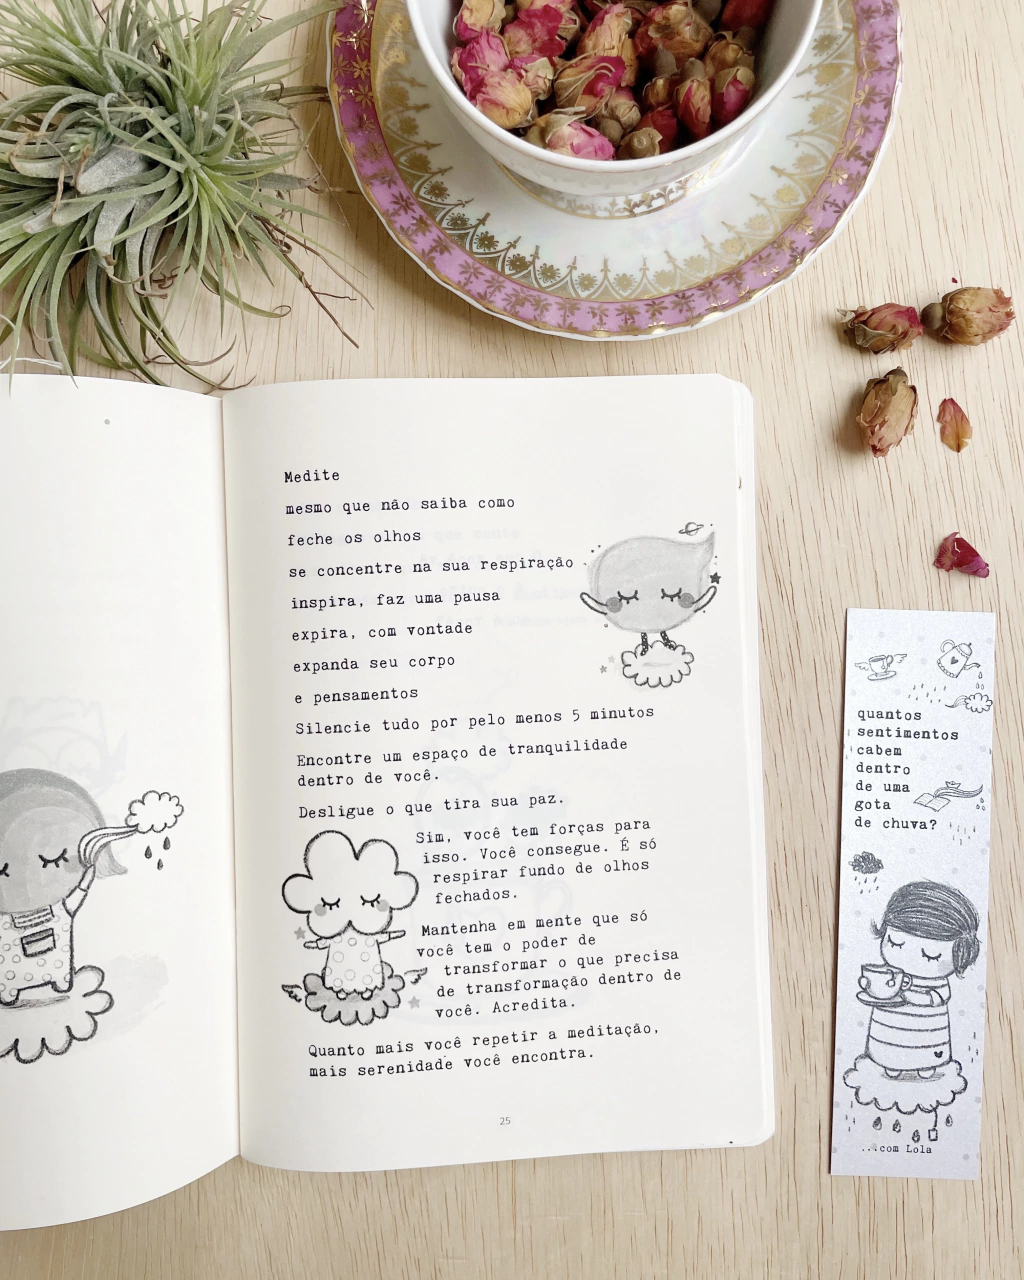 Medite
mesmo que não saiba como
feche os olhos
se concentre na sua respiração
inspira, faz uma pausa
expira, com vontade
expanda seu corpo
e pensamentos
Silencie tudo por pelo menos 5 minutos
Encontre um espaço de tranquilidade
dentro de você.
Desligue o que tira sua paz.
Sim, você tem forças para
isso. Você consegue. É só
respirar fundo de olhos
fechados.
Mantenha em mente que só
você tem o poder de
transformar o que precisa
de transformação dentro de
você. Acredita.
Quanto mais você repetir a meditação,
mais serenidade você encontra.
25
quantos
sentimentos
cabem
dentro
de uma
gota
de chuva?
...com Lola